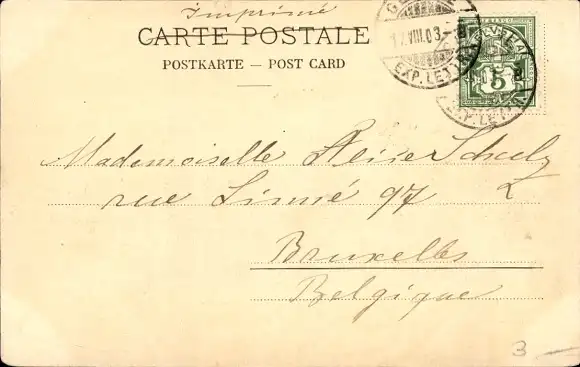 Imprimé
CARTE POSTALE
POSTKARTE — POST CARD
17.VIII.03.
EXP. LETTR.
5
Mademoiselle
rue Linné 97
Bruxelles
Belgique
3